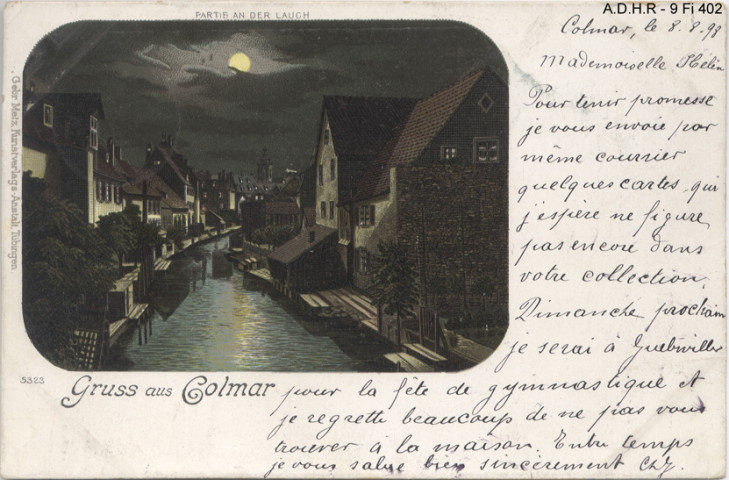 PARTIE AN DER LAUCH
A.D.H.R - 9 Fi 402
Colmar, le 8.8.98
Mademoiselle Hélèn
Pour tenir promesse
je vous envoie par
même courrier
quelques cartes qui
j'espère ne figure
pas encore dans
votre collection.
Dimanche prochain
je serai à Guebwiller
pour la fête de gymnastique et
je regrette beaucoup de ne pas vous
trouver à la maison. Entre temps
je vous salue bien sincèrement
Gebr. Metz, Kunstverlags-Anstalt, Tübingen.
5323
Gruss aus Colmar